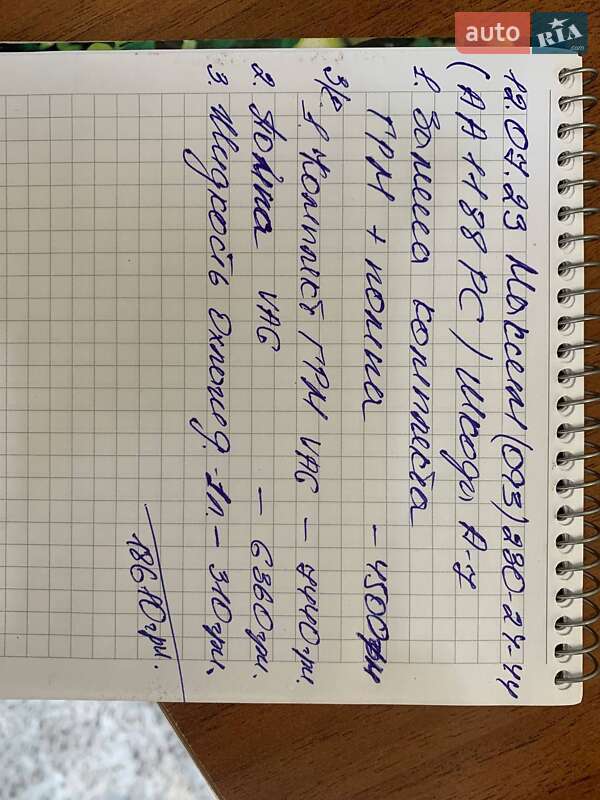 12.07.23 Максим (093) 280-24-44
(АА 1188 РС / Шкода А-7
1. Замена комплекта
ГРМ + помпа - 4500грн
З/ч 1. Комплект ГРМ VAG - 7440грн.
2. Помпа VAG - 6360грн.
3. Жидкость Охлажд. -1л. - 310грн.
18610грн.
auto RIA.com